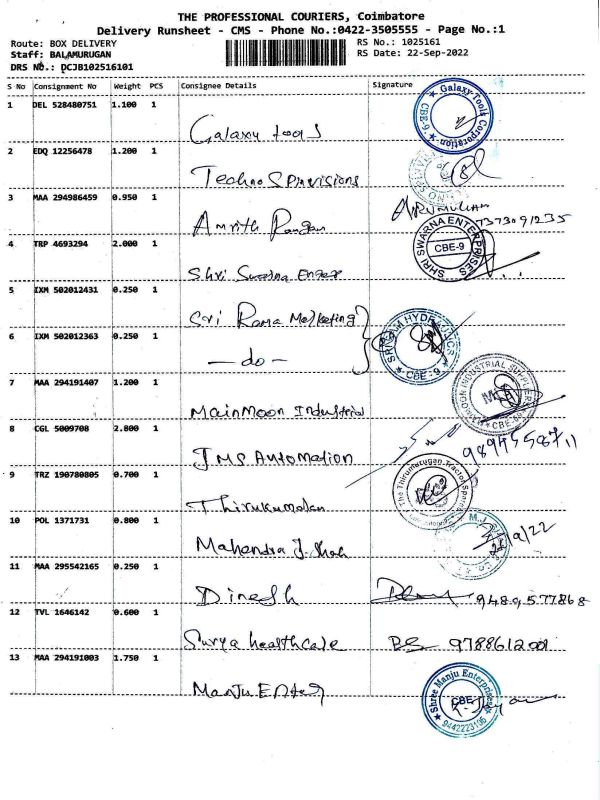 THE PROFESSIONAL COURIERS, Coimbatore
Delivery Runsheet - CMS - Phone No.:0422-3505555 - Page No.:1
Route: BOX DELIVERY
Staff: BALAMURUGAN
DRS No.: DCJB102516101
RS No.: 1025161
RS Date: 22-Sep-2022
S No Consignment No Weight PCS Consignee Details Signature
1 DEL 528480751 1.100 1
Galaxy tools
Galaxy Tools Corporation CBE-6
2 EDQ 12256478 1.200 1
Techno S Provisions
3 MAA 294986459 0.950 1
Amrith Rangan
7373091235
4 TRP 4693294 2.000 1
Shri Swarna Enter
SHRI SWARNA ENTERPRISES CBE-9
5 IXM 502012431 0.250 1
Sri Rama Marketing
6 IXM 502012363 0.250 1
— do —
CBE - 9
7 MAA 294191407 1.200 1
MainMoon Industrial
8 CGL 5009708 2.800 1
JMS Automation
9 TRZ 190780805 0.700 1
Thirukumalan
10 POL 1371731 0.800 1
Mahendra J. Shah
11 MAA 295542165 0.250 1
Dinesh
9489577868
12 TVL 1646142 0.600 1
Surya healthcare
13 MAA 294191003 1.750 1
Manju Enter
Shree Manju Enterprises CBE 9442223196